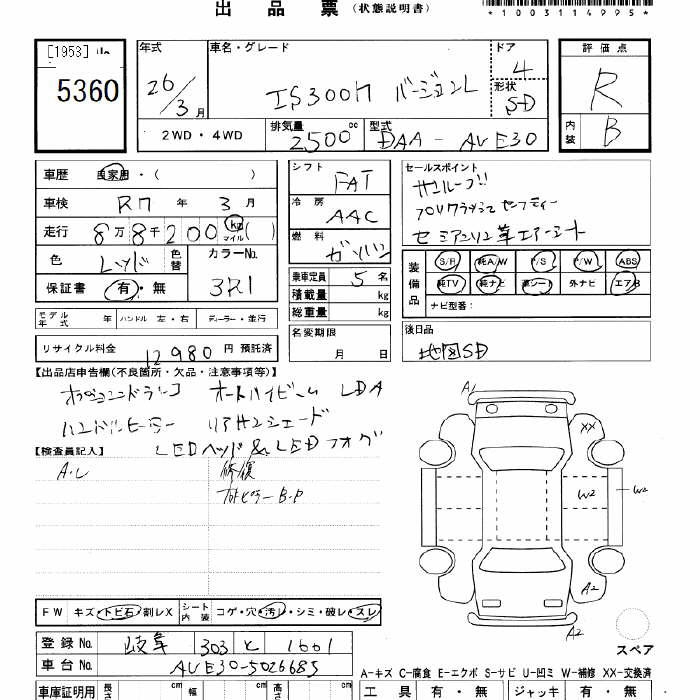 出品票(状態説明書)
*1003114995*
[1953]
5360
年式 26/3月
車名・グレード IS300h バージョンL
ドア 4
形状 SD
2WD・4WD
排気量 2500cc
型式 DAA-AVE30
評価点 R
内装 B
車歴 自家用・( )
車検 R7年3月
走行 8万8千200km マイル( )
色 レッド 色替
カラーNo. 3R1
保証書 有・無
シフト FAT
冷房 AAC
燃料 ガソリン
乗車定員 5名
積載量 kg
総重量 kg
セールスポイント
サンルーフ!!
プリクラッシュセーフティー
セミアニリン革エアーシート
装備品 S/R 純A/W P/S P/W ABS
純TV 純ナビ 革シート 外ナビ エアB
ナビ型番:
モデル年式 年 ハンドル 左・右 ディーラー・並行
リサイクル料金 12980円 預託済
名変期限 月 日
後日品
地図SD
【出品店申告欄(不良箇所・欠品・注意事項等)】
オートハイビーム LDA
ハンドルヒーター リアサンシェード
LEDヘッド&LEDフォグ
【検査員記入】
A.L 修復
B.P
A1
XX
W2
W2
A2
A2
スペア
FW キズ・トビ石・割レX シート内装 コゲ・穴・汚レ・シミ・破レ・スレ
登録No. 岐阜 303 と 1601
車台No. AVE30-5026685
A-キズ C-腐食 E-エクボ S-サビ U-凹ミ W-補修 XX-交換済
車庫証明用 長さ cm 幅 cm 高さ cm
工具 有・無 ジャッキ 有・無